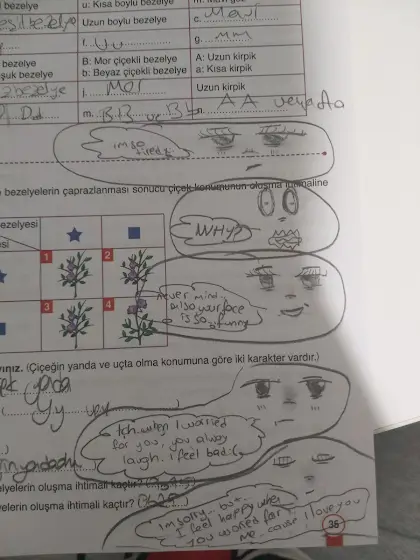 bezelye
u: Kısa boylu bezelye
Uzun boylu bezelye
c. Mavi
f. Uu
g. MM
bezelye
şuk bezelye
B: Mor çiçekli bezelye
b: Beyaz çiçekli bezelye
A: Uzun kirpik
a: Kısa kirpik
j. Mor
Uzun kirpik
Dd
m. BB ve Bb
n. AA veya Aa
im so
tired:(
bezelyelerin çaprazlanması sonucu çiçek konumunun oluşma
WHY?
ezelyesi
esi
1
2
3
4
Never mind..
also your face
is so funny
(Çiçeğin yanda ve uçta olma konumuna göre iki karakter vardır.)
yanda
Yy
Ich.. when I worried
for you, you alway
laugh. i feel bad:(
elyelerin oluşma ihtimali kaçtır?
yelerin oluşma ihtimali kaçtır? (%25)
im sorry.. but..
I feel happy when
you woried for
me.. cause I love you
36